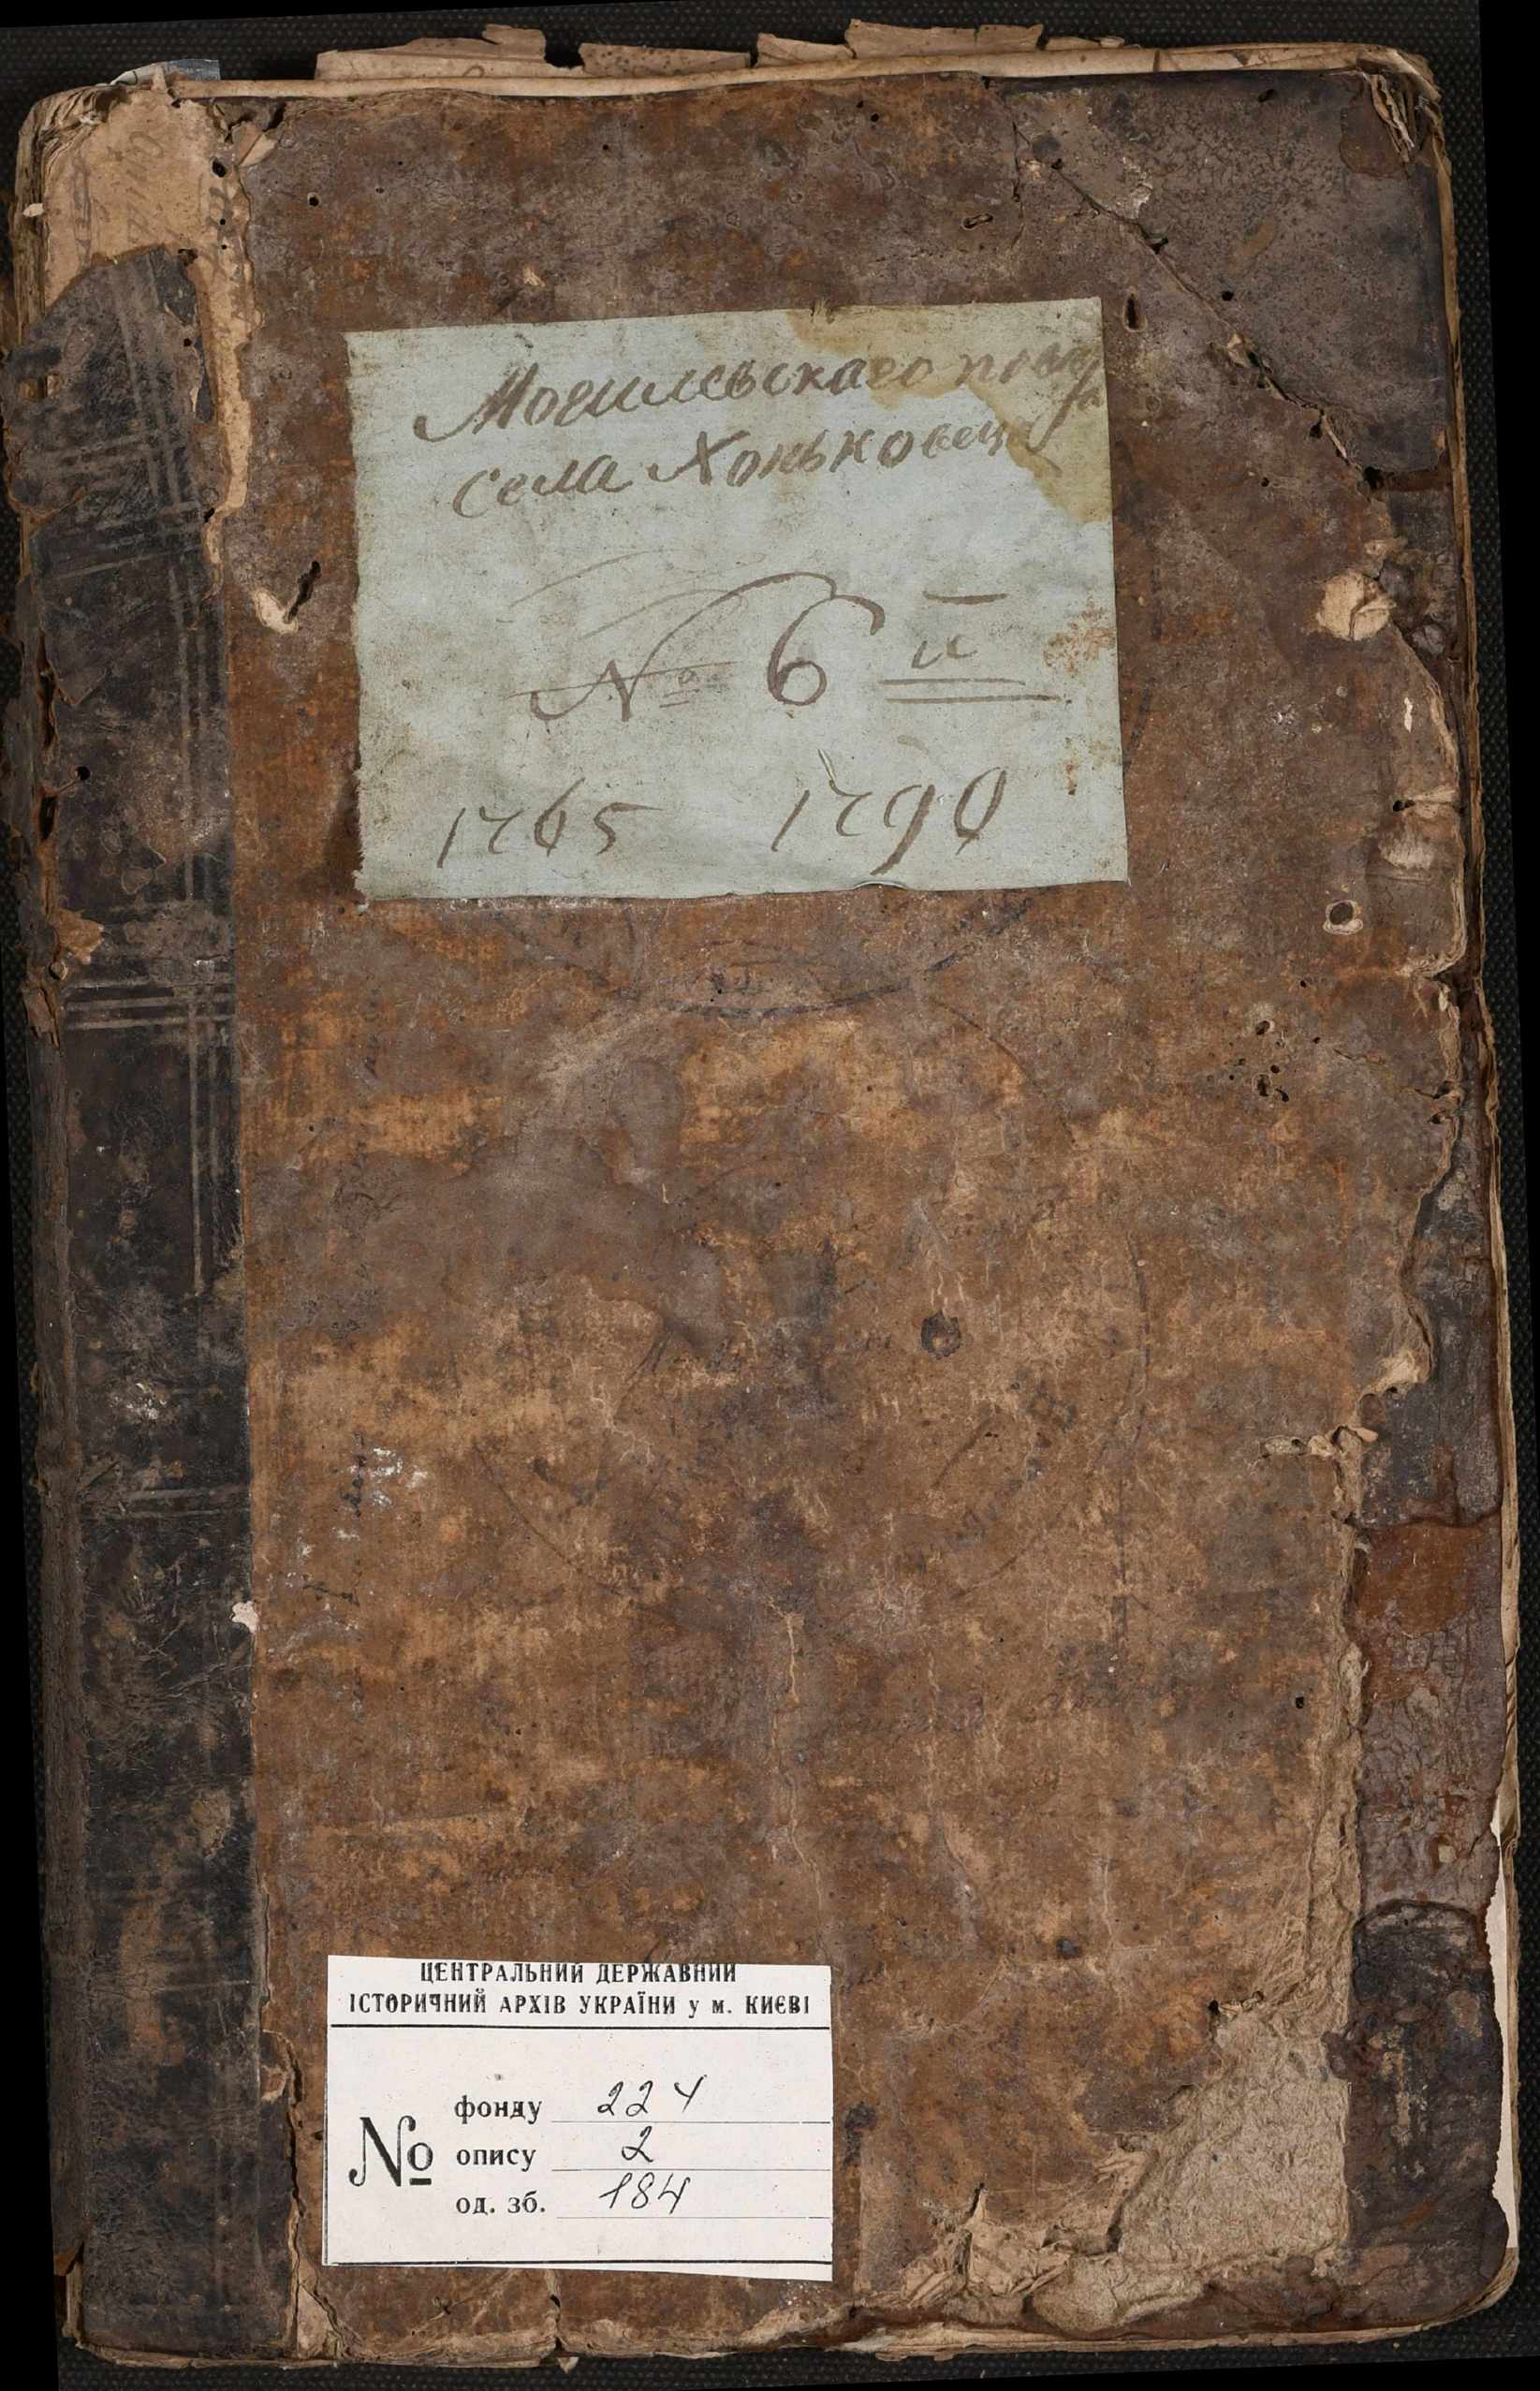 Могилевьскаго повѣта
села Хоньковецъ
№ 6 й
1765 1790
ЦЕНТРАЛЬНИЙ ДЕРЖАВНИЙ
ІСТОРИЧНИЙ АРХІВ УКРАЇНИ у м. КИЄВІ
№
фонду 224
опису 2
од. зб. 184